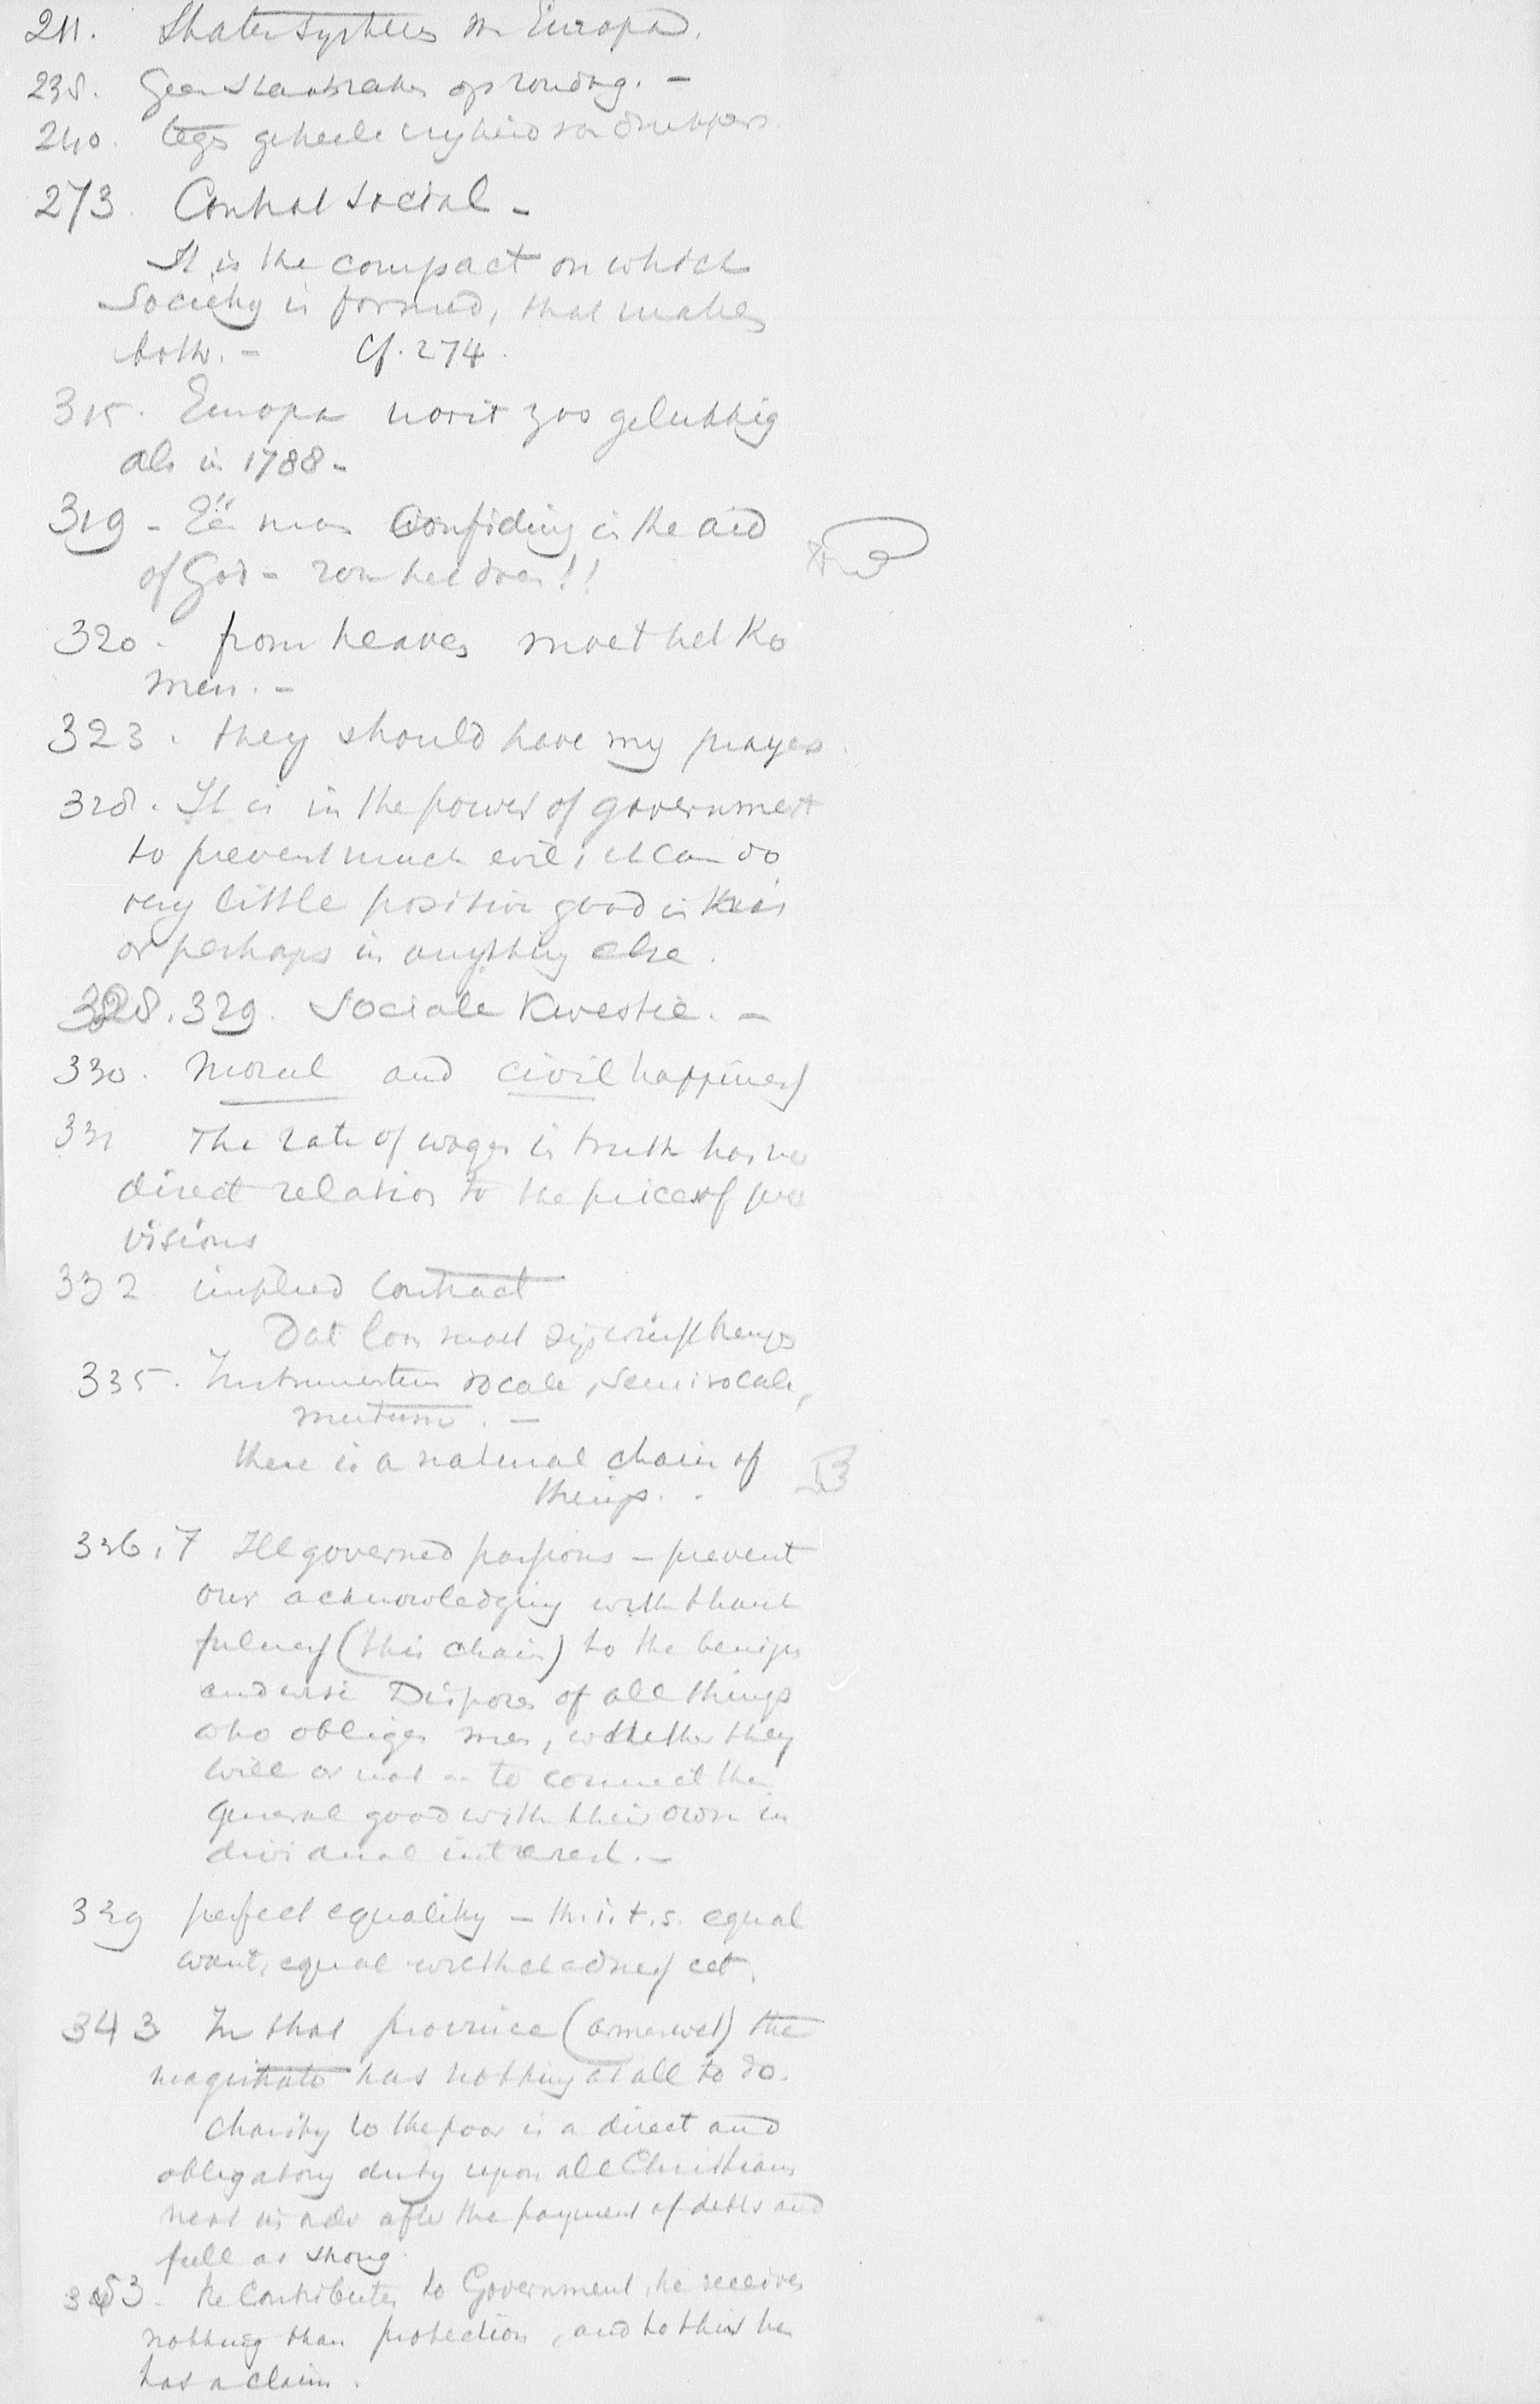 211. Statensysteem in Europa.
238. Geen Staatszaken op zondag. -
240. tegen geheele vrijheid van drukpers.
273. Contrat social -
It is the compact on which
Society is formed, that makes
both. - Cf. 274.
315. Europa nooit zoo gelukkig
als in 1788 -
319 - Eén man Confiding in the aid
of God - zou het doen!!
320. from heaven moet het ko
men. -
323. they should have my prayers.
328. It is in the power of government
to prevent much evil; it can do
very little positive good in this
or perhaps in anything else.
328. 329. Sociale Kwestie. -
330. Moral and civil happiness
331 The rate of wages in truth has no
direct relation to the price of pro
visions
332 implied contract
Dat loon moet
335. Instrumentum vocale, semivocale,
mutum. -
there is a natural chain of
things. -
336.7 Ill governed passions - prevent
our acknowledging with thank
fulness (this chain) to the benign
and wise Disposer of all things
who obliges men, whether they
will or not - to connect the
general good with their own in
dividual interest. -
339 perfect equality - th. i. t. s. equal
want, equal wretchedness cet.
343 In that province (armenwet) the
magistrate has nothing at all to do.
Charity to the poor is a direct and
obligatory duty upon all Christians
next in order after the payment of debts and
full as strong.
353. He contributes to Government, he receives
nothing than protection, and to this he
has a claim.